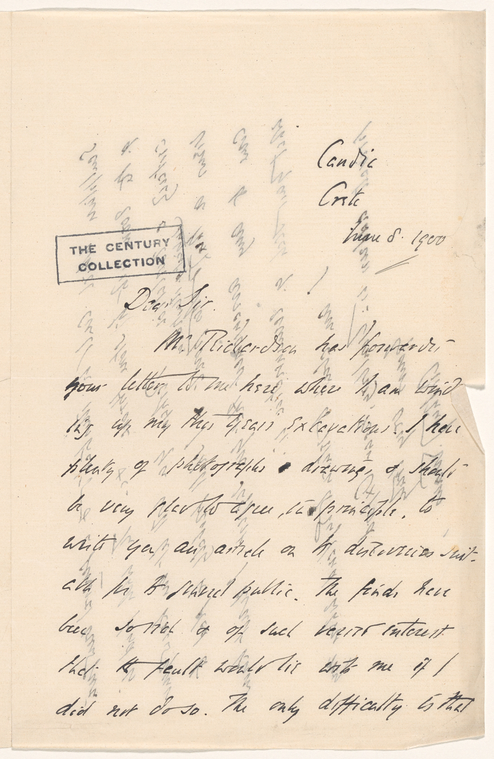 Candia
Crete
June 8. 1900
THE CENTURY
COLLECTION
Dear Sir.
Mr Richardson has forwarded
your letter to me here where I am wind-
ing up my this year's excavations. I have
plenty of photographs & drawings & should
be very glad to agree, in principle, to
write you an article on the discoveries suit-
able for the general public. The finds have
been so rich & of such varied interest
that the fault would lie with me if I
did not do so. The only difficulty is that